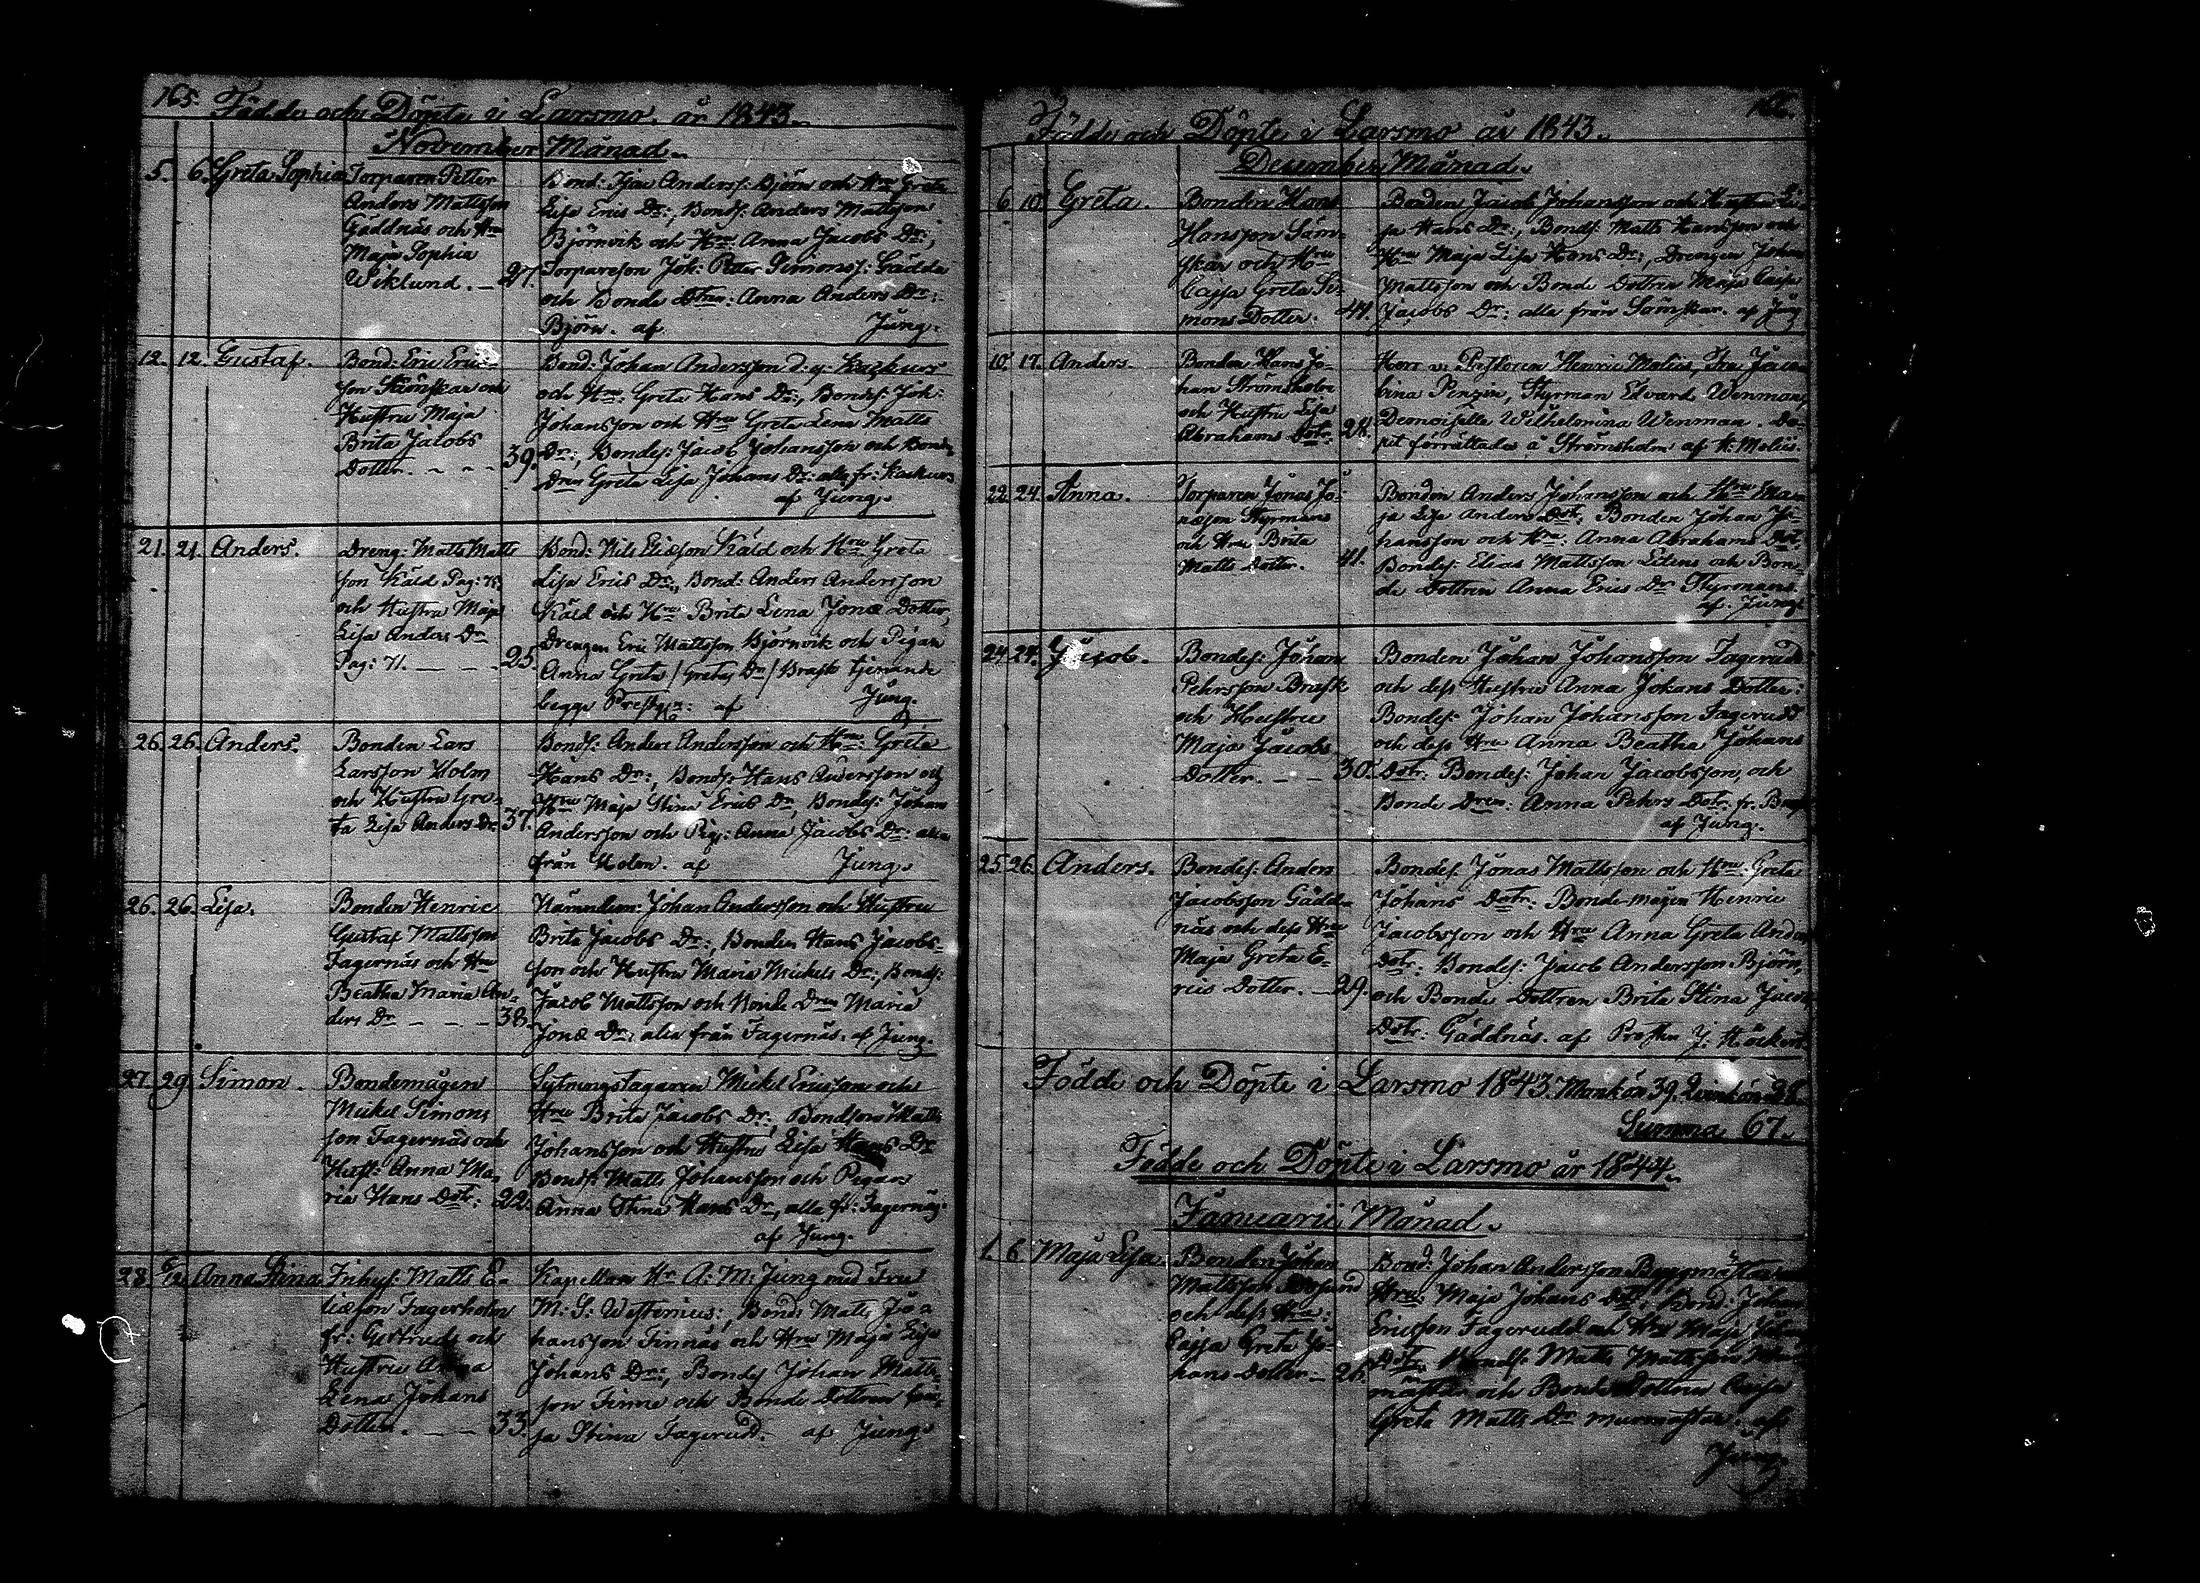 165. Födde och Döpte i Larsmo år 1843.
November Månad.
5. 6. Greta Sophia Torparen Petter
Anders Mattsson
Gäddnäs och Hru
Maja Sophia
Wiklund. — 27.
Bond: Isac Anderss: Björn och Hru Greta
Lisa Erics Dr:, Bonds: Anders Mattsson
Björnvik och Hru Anna Jacobs Dr:,
Torpareson Joh: Petter Simonss: Gädda
och Bonde Dtrn: Anna Anders Dr:
Björn. af Jung.
12. 12. Gustaf. Bond: Eric Eric-
son Sämskar och
Hustru Maja
Brita Jacobs
Dotter. - - - 39.
Bond: Johan Andersson d.y. Kackurs
och Hru Greta Hans Dr:, Bonds: Joh:
Johansson och Hru Greta Lena Matts
Dr:, Bondes: Jacob Johansson och Bonde
Drn Greta Lisa Johans Dr: alla fr: Kackurs
af Jung.
21. 21. Anders. Dreng: Matts Matts
son Käld Pag: 75
och Hustru Maja
Lisa Anders Dr
Pag: 71. — — - 25.
Bond: Nils Eliæson Käld och Hru Greta
Lisa Erics Dr:, Bond: Anders Andersson
Käld och Hru Brita Lena Jonæ Dotter,
Drengen Eric Mattsson Björnvik och Pigan
Anna Greta / Gretas Dr / Brask tjenande
begge Prestg: af Jung.
26. 26. Anders. Bonden Lars
Larsson Holm
och Hustru Gre-
ta Lisa Anders Dr. 37.
Bonds: Anders Andersson och Hru Greta
Hans Dr:, Bonds: Hans Andersson och
Hru Maja Stina Erics Dr, Bondes: Johan
Andersson och Pig: Anna Jacobs Dr: alla
från Holm. af Jung.
26. 26. Lisa. Bonden Henric
Gustaf Mattsson
Fagernäs och Hru
Beatha Maria An-
ders Dr - - - 38.
Nämndem: Johan Andersson och Hustru
Brita Jacobs Dr:, Bonden Hans Jacobs-
son och Hustru Maria Mickels Dr:, Bonds:
Jacob Mattsson och Bonde Drn Maria
Jonæ Dr, alla från Fagernäs. af Jung.
27. 29. Simon. Bondemågen
Mickel Simons
son Fagernäs och
Hust: Anna Ma-
ria Hans Dotr: 22.
Sytningstagaren Mickel Ericsson och
Hru Brita Jacobs Dr:, Bondson Matts
Johansson och Hustru Lisa Hans Dr
Bonds: Matts Johansson och Pigan
Anna Stina Hans Dr, alla fr: Fagernäs.
af Jung.
28. 6/12 Anna Stina Inhys: Matts E-
liæson Fagerholm
fr: Gertruds och
Hustru Anna
Lena Johans
Dotter. — — 33.
Kapellan Hr A: M: Jung med Fru
M: S: Westenius:, Bonds: Matts Jo-
hansson Finnäs och Hru Maja Lisa
Johans Dr:, Bondes Johan Matts-
son Finne och Bonde Dottren Cai-
sa Stina Fagerudd. af Jung.
166.
Födde och Döpte i Larsmo år 1843.
December Månad.
6. 10. Greta. Bonden Hans
Hansson Säm-
skar och Hru
Cajsa Greta Si-
mons Dotter. 44.
Bonden Jacob Johansson och Hustru Li-
sa Hans Dr:, Bonds: Matts Hansson och
Hru Maja Lisa Hans Dr:, Drengen Johan
Mattsson och Bonde Dottren Maja Caisa
Jacobs Dr: alla från Sämskar. af Jung
10. 17. Anders. Bonden Hans Jo-
han Strömsholm
och Hustru Lisa
Abrahams Dotr: 24.
Herr v: Pastoren Henric Melius, Fru Jaco-
bina Penzin, Styrman Edvard Wenman,
Demoiselle Wilhelmina Wenman. Do-
pet förrättades å Strömsholm af H: Melius.
22. 24. Anna. Torparen Jonas Jo-
næson Styrmans
och Hru Brita
Matts Dotter. 41.
Bonden Anders Johansson och Hru Ma-
ja Lisa Anders Dotr: Bonden Johan Jo-
hansson och Hru: Anna Abrahams Dotr:
Bondes: Elias Mattsson Litens och Bon-
de Dottren Anna Erics Dr Styrmans.
af. Jung.
24. 27. Jacob. Bondes: Johan
Pehrsson Brask
och Hustru
Maja Jacobs
Dotter. - — 30.
Bonden Johan Johansson Fagerudd
och dess Hustru Anna Johans Dotter:
Bondes: Johan Johansson Fagerudd
och dess Hru Anna Beatha Johans
Dotr: Bondes: Johan Jacobsson, och
Bonde Dren: Anna Pehrs Dotr: fr. Brask
af Jung.
25. 26. Anders. Bondes: Anders
Jacobsson Gädd-
näs och dess Hru
Maja Greta E-
rics Dotter. — 29.
Bondes. Jonas Mattsson och Hru: Greta
Johans Dotr: Bonde-mågen Henric
Jacobsson och Hru Anna Greta Anders
Dotr: Bondes: Jacob Andersson Björn,
och Bonde Dottren Brita Stina Jacobs
Dotr: Gäddnäs. af Prosten J. Höckert.
Födde och Döpte i Larsmo 1843. Mankön 39. Qvinkön 28.
Summa 67.
Födde och Döpte i Larsmo år 1844.
Januarii Månad.
1. 6. Maja Lisa Bonden Johan
Mattsson
och dess Hru:
Caisa Greta Jo-
hans Dotter — 26.
Bond: Johan Andersson Byggmästar
Hru: Maja Johans Dotr: Bond: Johan
Ericsson Fagerudd och Hru Maja
Bonds: Matts Mattsson
mästar och Bonde Dottren Caisa
Greta Matts Dr murmästar. af
Jung.